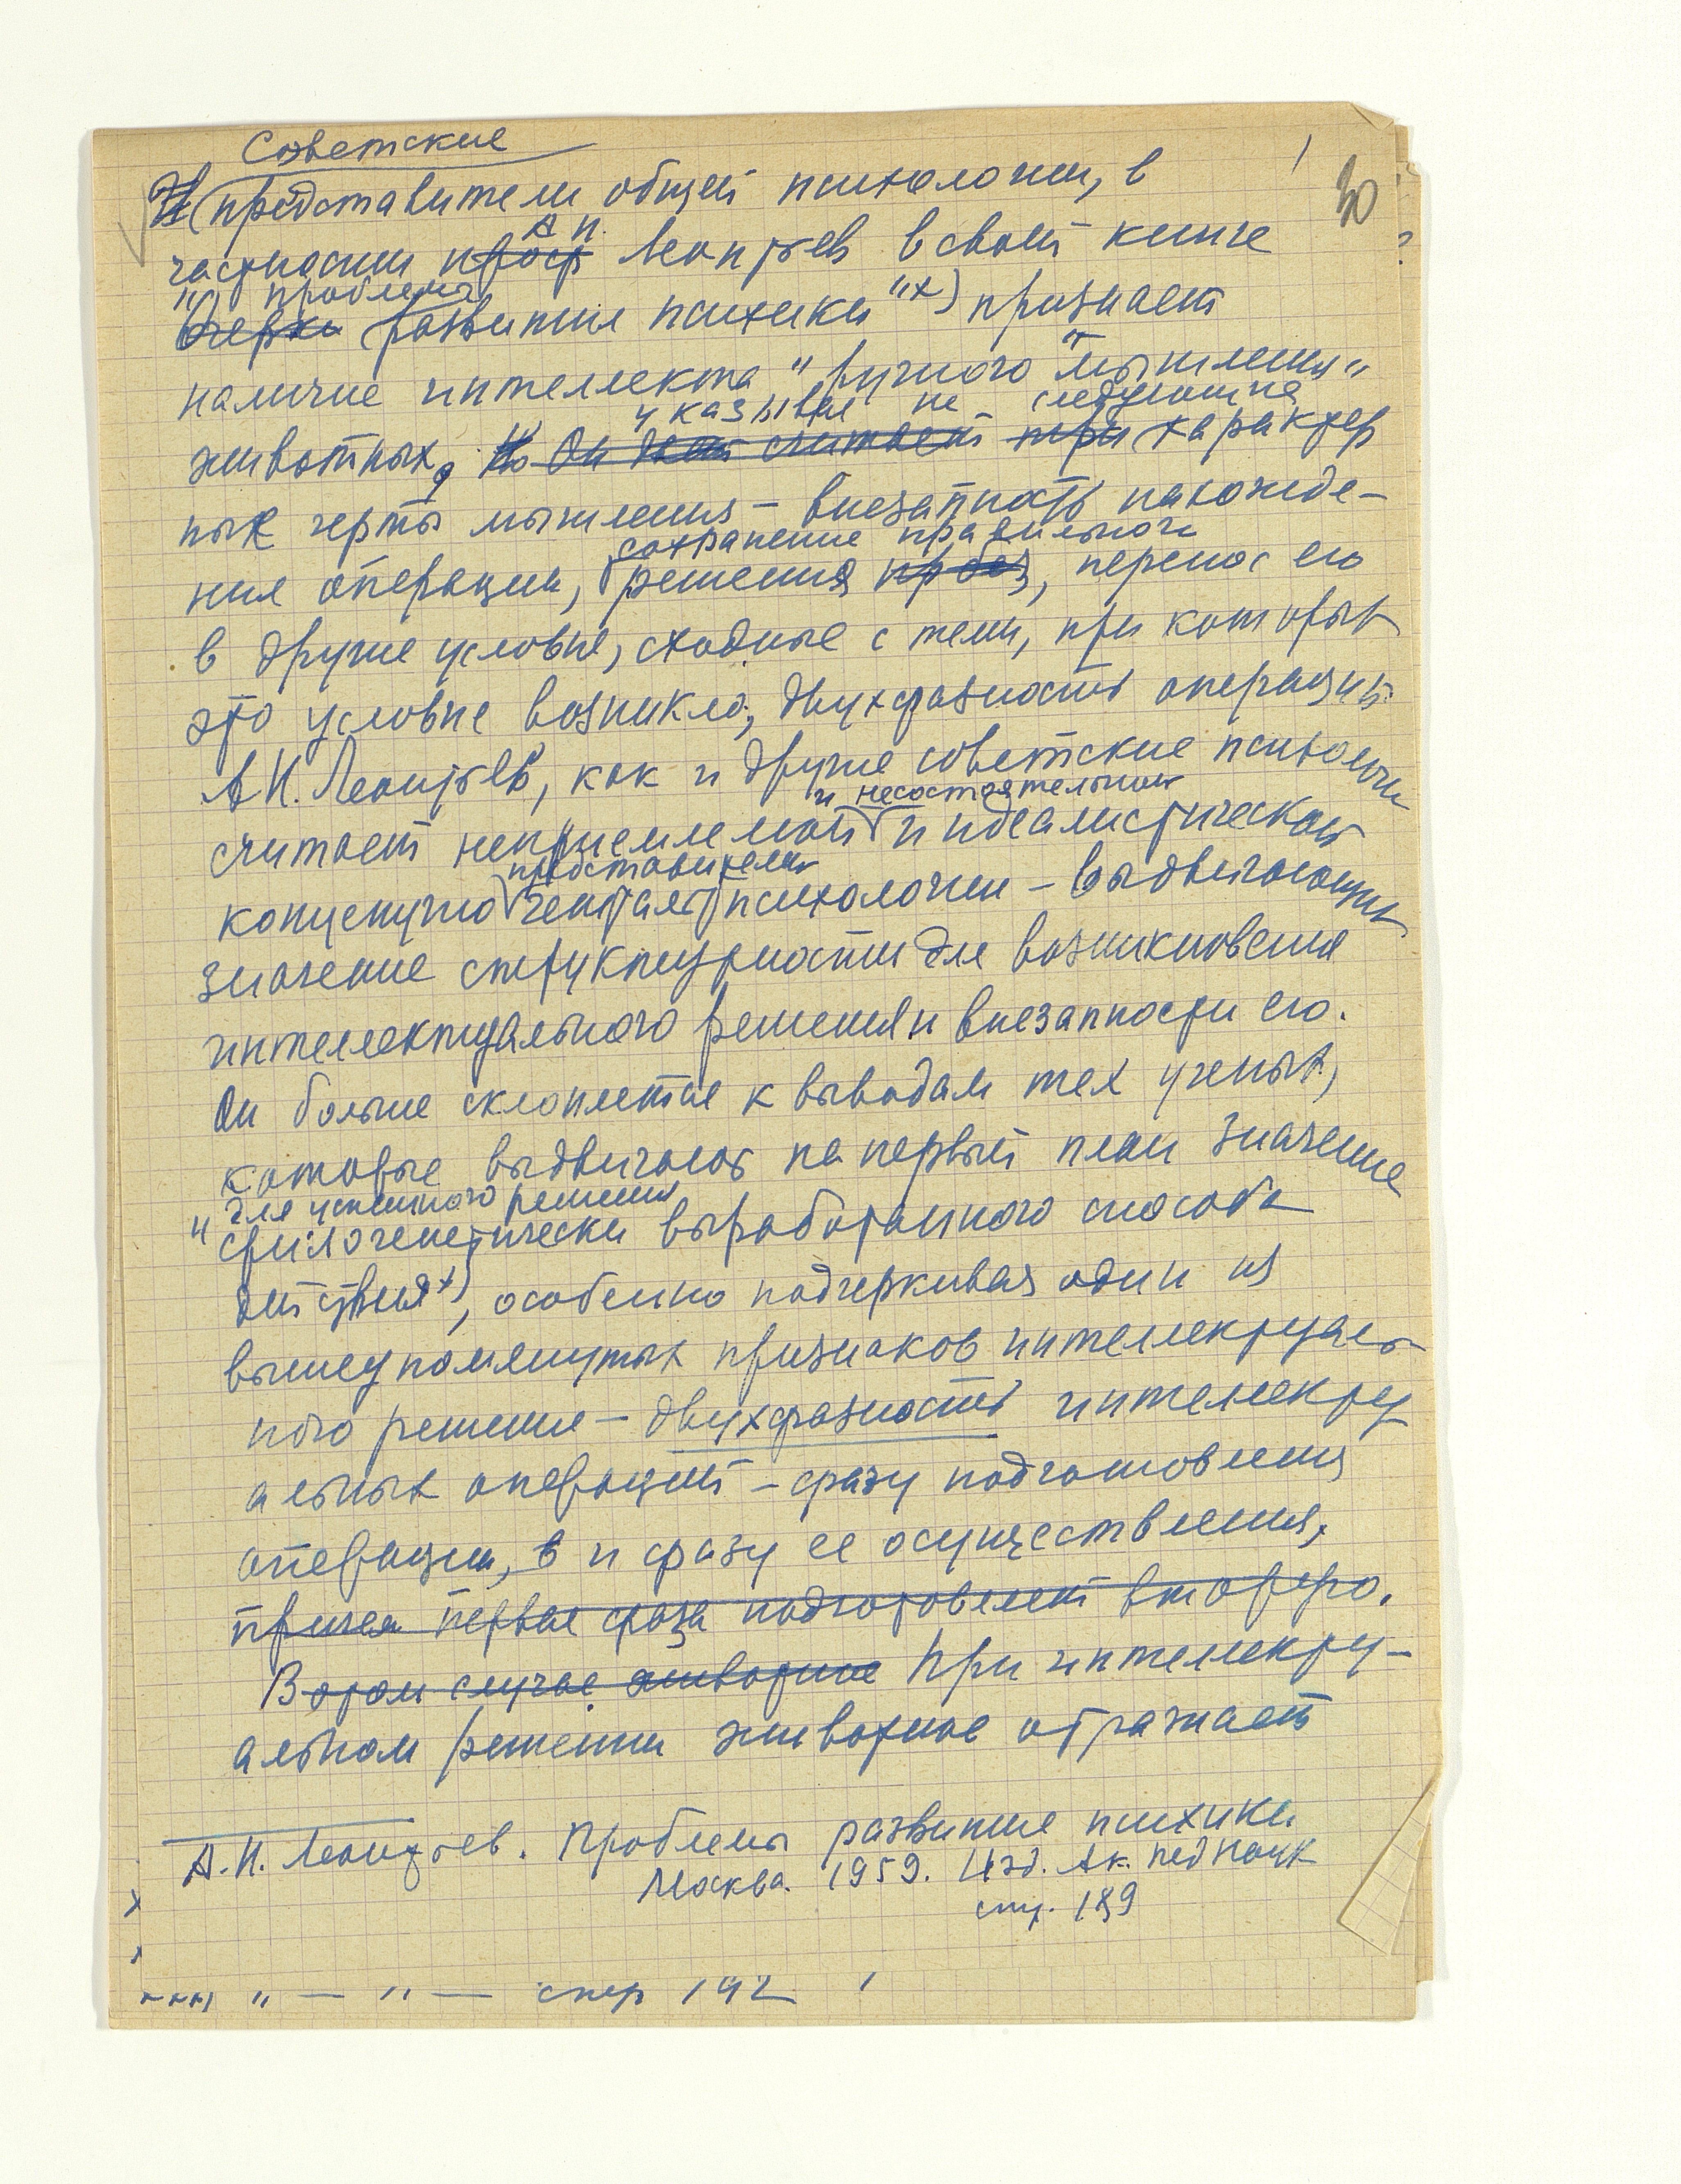 Советские
30
И представители общей психологии, в
А Н.
частности проф Леонтьев в своей книге
"Проблемы
Очерки развития психики" х) признает
наличие интеллекта, "ручного мышления"
указывая на следующие
животных, Но Он считает три характер
ные черты мышления – внезапность нахожде-
сохранение правильного
ния операции, решения проб, перенос его
в другие условия, сходные с теми, при которых
это условие возникло, двухфазность операций.
А Н. Леонтьев, как и другие советские психологи
и несостоятельной
считает неприемлемой и идеалистической
представителей
концепцию гештальт психологии – выдвигающих
значение структурности для возникновения
интеллектуального решения и внезапности его.
Он больше склоняется к выводам тех ученых,
которые выдвигают на первый план значение
для успешного решения
"филогенетически выработанного способа
действия" х), особенно подчеркивая один из
вышеупомянутых признаков интеллектуаль-
ного решения – двухфазность интеллекту
альных операций – фазу подготовления
операции, в и фазу ее осуществления,
причем первая фаза подготовляет вторую.
В этом случае животное При интеллекту-
альном решении животное отражает
А. Н. Леонтьев. Проблемы развития психики
Москва. 1959. Изд. Ак. Пед Наук
стр. 189
" — " — стр 192